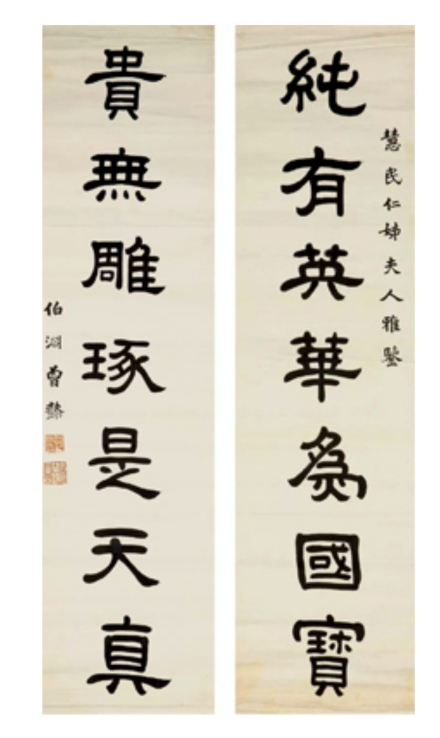 慧民仁姊夫人雅鑒
純有英華爲國寶
貴無雕琢是天真
伯淵曾懿